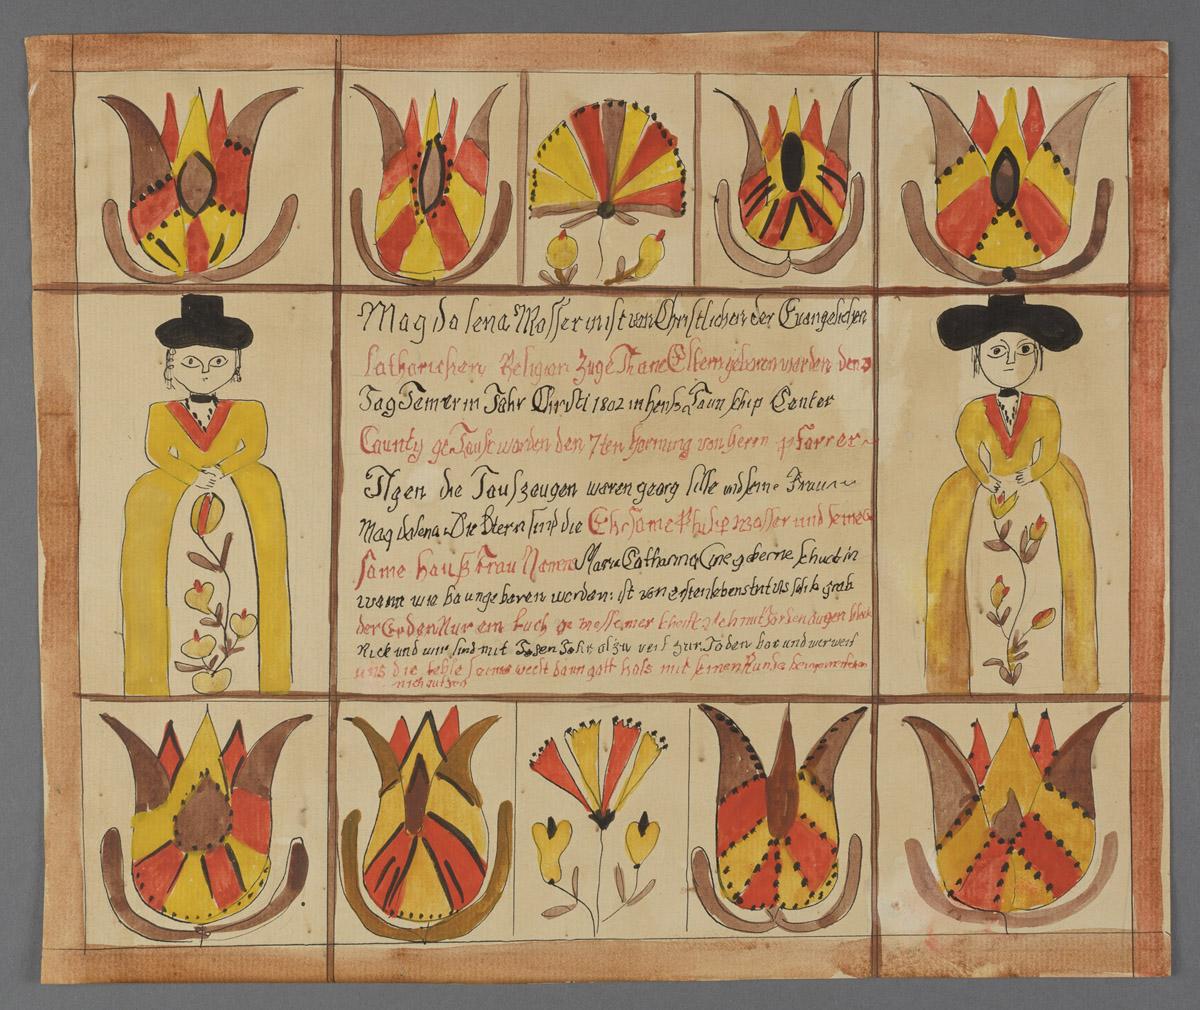 Magdalena Masserin ist von Christlichen der Evangelischen
lutharischen Religion Zuge Thane Eltern geboren worden den
Tag Jenner im Jahr Christi 1802 in hens Taun ship Center
Caunty ge Tauft worden den 7ten hornung von herrn pfarrer
Ilgen die Taufzeugen waren georg und seine Frau
Magdalena Die Eltern sind die Ehrsame Philip Wasser und seine
same hauß Frau Namens Maria Catharina Eine geborne schuckin
wann wir kaum geboren worden: ist von ersten lebens tritt bis grab
der Erden Nur ein kurtz ge messener mit jeden augen blick
Rick und wir sind mit Jeden Jahr alzu reif zur Toden bar und wer weis
uns die letzte weckt dann gott hats mit seinen Munde keinem menschen